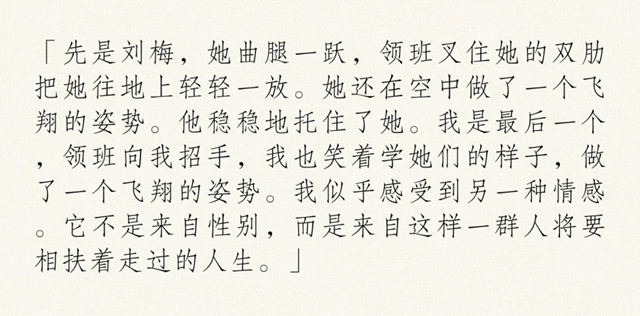 「先是刘梅，她曲腿一跃，领班叉住她的双肋
把她往地上轻轻一放。她还在空中做了一个飞
翔的姿势。他稳稳地托住了她。我是最后一个
，领班向我招手，我也笑着学她们的样子，做
了一个飞翔的姿势。我似乎感受到另一种情感
。它不是来自性别，而是来自这样一群人将要
相扶着走过的人生。」